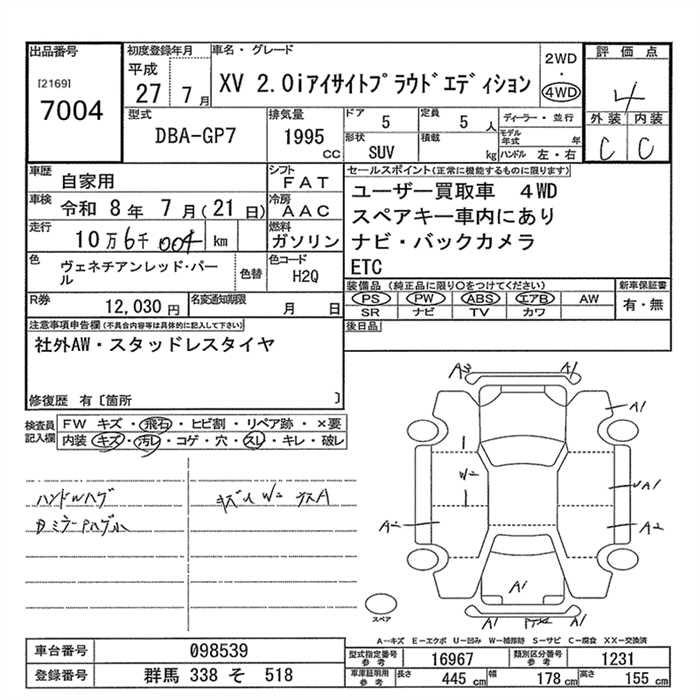 出品番号
[2169]
7004
初度登録年月
平成
27 7月
車名・グレード
XV 2.0iアイサイトプラウドエディション
2WD
・
4WD
評価点
4
外装 内装
C C
型式
DBA-GP7
排気量
1995
CC
ドア
5
定員
5 人
形状
SUV
積載
kg
ディーラー・並行
モデル年式 年
ハンドル 左・右
車歴
自家用
シフト
FAT
車検
令和 8年 7月(21日)
冷房
AAC
走行
10万6千004km
燃料
ガソリン
色
ヴェネチアンレッド・パール
色替
色コード
H2Q
R券
12,030円
名変通知期限
月 日
セールスポイント(正常に機能するものに限ります)
ユーザー買取車 4WD
スペアキー車内にあり
ナビ・バックカメラ
ETC
装備品(純正品に限り〇をつけてください)
PS PW ABS エアB AW
SR ナビ TV カワ
新車保証書
有・無
後日品
注意事項申告欄(不具合内容等は具体的に記入して下さい)
社外AW・スタッドレスタイヤ
修復歴 有〔箇所 〕
検査員記入欄
FW キズ・飛石・ヒビ割・リペア跡・×要
内装 キズ・汚レ・コゲ・穴・スレ・キレ・破レ
ハンドルハゲ
A3 A1
A1
W2
A1
A2 A2
A1
A1 A1
スペア
A-キズ E-エクボ U-凹み W-補修跡 S-サビ C-腐食 XX-交換済
車台番号 098539
登録番号 群馬 338 そ 518
型式指定番号 参考 16967
類別区分番号 参考 1231
車庫証明用 参考
長さ 445cm
幅 178cm
高さ 155cm